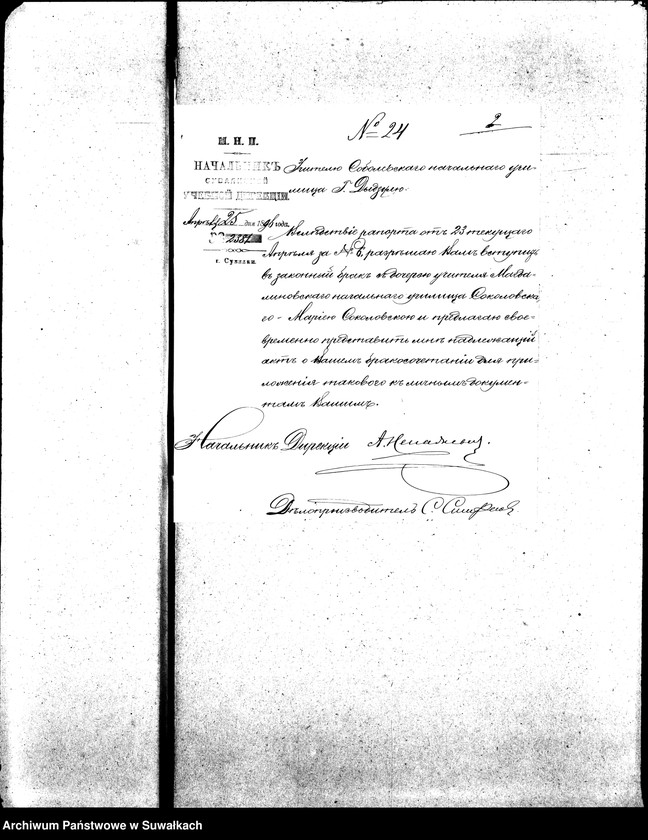 № 24
2
М. Н. П.
НАЧАЛЬНИКЪ
СУВАЛКСКОЙ
УЧЕБНОЙ ДИРЕКЦІИ.
Апрѣля 25 дня 189 года.
№ 2387
г. Сувалки.
Учителю Собольскаго начальнаго учи-
лища Г.
Вслѣдствіе рапорта отъ 23 текущаго
Апрѣля за № разрѣшаю Вамъ вступить
въ законный бракъ съ дочерью учителя Магда-
линовскаго начальнаго училища Соколовска-
го - Маріею Соколовскою и предлагаю свое-
временно представить мнѣ надлежащій
актъ о Вашемъ бракосочетаніи для при-
ложенія таковаго къ личнымъ докумен-
тамъ Вашимъ.
Начальникъ Дирекціи А.
Дѣлопроизводитель С.
Archiwum Państwowe w Suwałkach